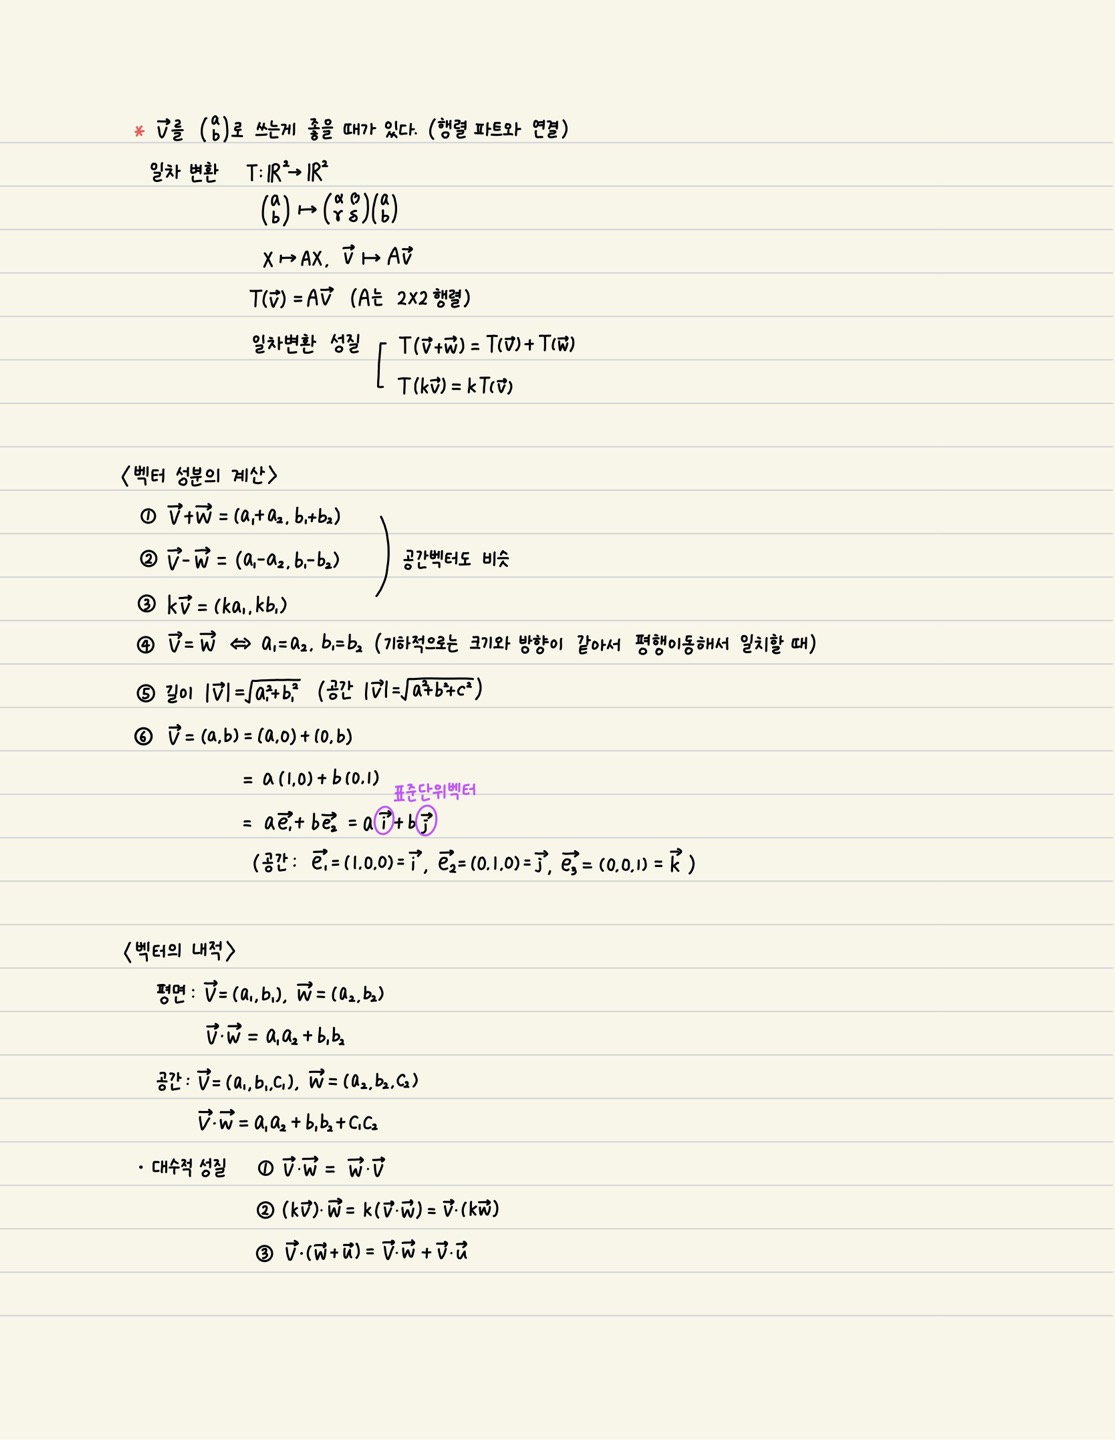 * v⃗를 (a b)로 쓰는게 좋을 때가 있다. (행렬 파트와 연결)
일차 변환 T: ℝ² → ℝ²
(a b) ↦ (α β γ δ)(a b)
X ↦ AX, v⃗ ↦ Av⃗
T(v⃗) = Av⃗ (A는 2×2 행렬)
일차변환 성질 [ T(v⃗+w⃗) = T(v⃗) + T(w⃗)
T(kv⃗) = kT(v⃗)
<벡터 성분의 계산>
① v⃗+w⃗ = (a₁+a₂, b₁+b₂)
② v⃗-w⃗ = (a₁-a₂, b₁-b₂) ) 공간벡터도 비슷
③ kv⃗ = (ka₁, kb₁)
④ v⃗ = w⃗ ⇔ a₁=a₂, b₁=b₂ (기하적으로는 크기와 방향이 같아서 평행이동해서 일치할 때)
⑤ 길이 |v⃗| = √(a₁²+b₁²) (공간 |v⃗| = √(a²+b²+c²))
⑥ v⃗ = (a,b) = (a,0) + (0,b)
= a(1,0) + b(0,1)
표준단위벡터
= ae⃗₁ + be⃗₂ = ai⃗ + bj⃗
(공간: e⃗₁ = (1,0,0) = i⃗, e⃗₂ = (0,1,0) = j⃗, e⃗₃ = (0,0,1) = k⃗)
<벡터의 내적>
평면: v⃗ = (a₁,b₁), w⃗ = (a₂,b₂)
v⃗·w⃗ = a₁a₂ + b₁b₂
공간: v⃗ = (a₁,b₁,c₁), w⃗ = (a₂,b₂,c₂)
v⃗·w⃗ = a₁a₂ + b₁b₂ + c₁c₂
· 대수적 성질 ① v⃗·w⃗ = w⃗·v⃗
② (kv⃗)·w⃗ = k(v⃗·w⃗) = v⃗·(kw⃗)
③ v⃗·(w⃗+u⃗) = v⃗·w⃗ + v⃗·u⃗